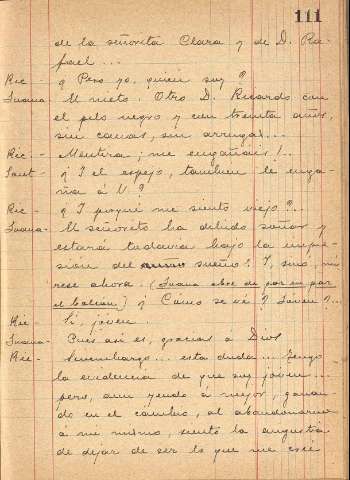 111
de la señorita Clara y de D. Ra-
fael...
Ric - ¿Pero yo, quien soy?
Juana - El nieto. Otro D. Ricardo con
el pelo negro y con treinta años,
sin canas, sin arrugas...
Ric. - Mentira; me engañais!..
Sant - ¿Y el espejo, tambien le enga-
ña á V.?
Ric - ¿Y porqué me siento viejo?..
Juana - El señorito ha debido soñar y
estará todavia bajo la impre-
sión del sueño! Y, sinó, mi
rese ahora. (Juana abre de par en par
el balcón) ¿Cómo se vé? Joven?...
Ric - Si, joven..
Juana - Pues así es, gracias á Dios
Ric - Sinembargo... esta duda... Tengo
la evidencia de que soy joven...
pero, aun yendo á mejor, ganan-
do en el cambio, al abandonarme
á mi mismo, siento la angustia
de dejar de ser lo que me creí